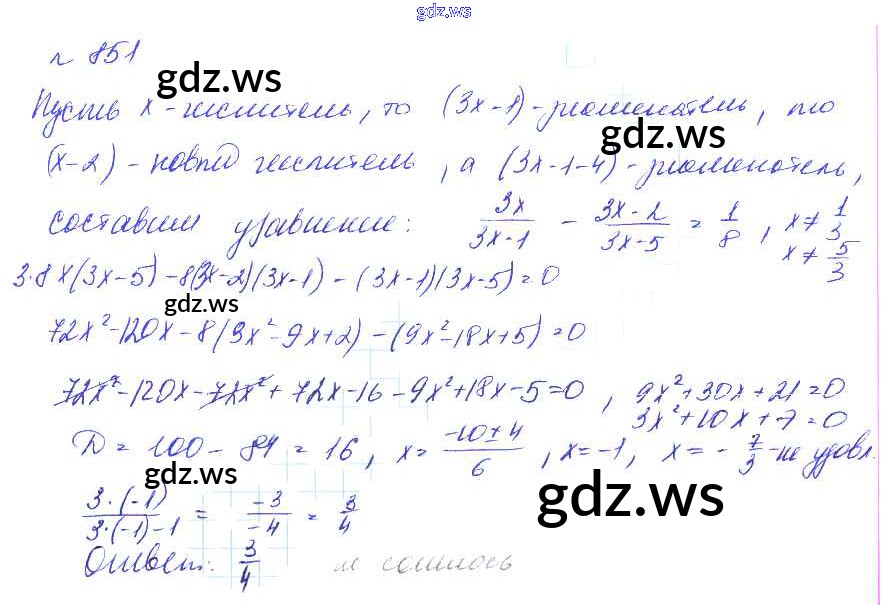 gdz.ws
№ 851
gdz.ws
Пусть x - числитель, то (3x-1) - знаменатель, то
gdz.ws
(x-2) - новый числитель, а (3x-1-4) - знаменатель,
составим уравнение: 3x/(3x-1) - (3x-2)/(3x-5) = 1/8, x≠1/3
x≠5/3
3·8x(3x-5)-8(3x-2)(3x-1)-(3x-1)(3x-5)=0
gdz.ws
72x²-120x-8(9x²-9x+2)-(9x²-18x+5)=0
72x²-120x-72x²+72x-16-9x²+18x-5=0, 9x²+30x+21=0
3x²+10x+7=0
D=100-84=16, x=(-10±4)/6, x=-1, x=-7/3-не удовл.
gdz.ws
gdz.ws
(3·(-1))/(3·(-1)-1) = -3/-4 = 3/4
Ответ: 3/4 сошлось